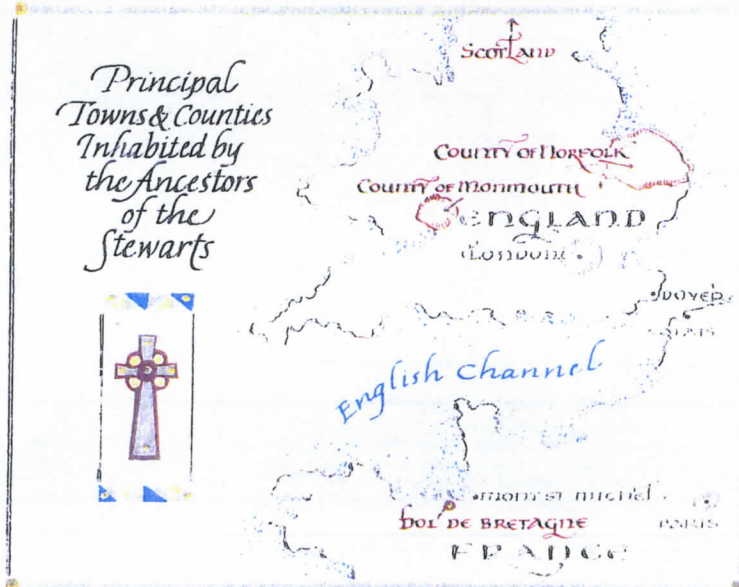 Principal
Towns & Counties
Inhabited by
the Ancestors
of the
Stewarts
Scotland
County of Norfolk
County of Monmouth
ENGLAND
London
Dover
English Channel
mont st michel
Paris
Dol de Bretagne
FRANCE